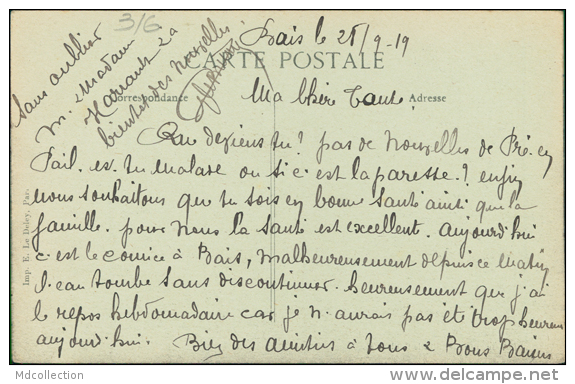 3/6
Bais le 25/9-19
CARTE POSTALE
Correspondance
Adresse
Sans oublier
M. & Madame
a
bientot des Nouvelles
Ma Chère Tante
Que deviens tu? pas de Nouvelles de Pré-en
Pail. es tu malade ou si c'est la paresse? enfin
nous souhaitons que tu sois en bonne santé ainsi que la
famille. pour nous la santé est excellent. aujourd'hui
c'est le comice à Bais, malheureusement depuis ce matin
l'eau tombe sans discontinuer. heureusement que j'ai
le repos hebdomadaire car je n'aurais pas été trop heureux
aujourd'hui. Bien des amitiés à tous & Bons Baisers
Imp. E. Le Deley, Par
Mdcollection
http://www.delcampe.net